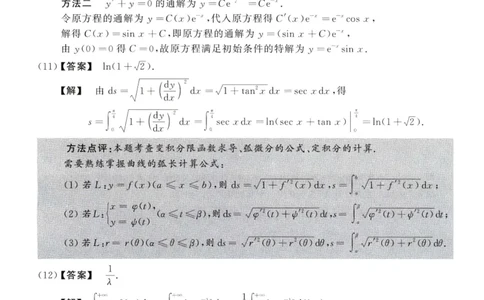 方法二 y′+y=0 的通解为 y=Ce⁻ˣ =Ce⁻ˣ.
令原方程的通解为 y=C(x)e⁻ˣ,代入原方程得 C′(x)e⁻ˣ=e⁻ˣcos x,
解得 C(x)=sin x+C,即原方程的通解为 y=(sin x+C)e⁻ˣ,
由 y(0)=0 得 C=0,故原方程满足初始条件的特解为 y=e⁻ˣsin x.
(11)【答案】 ln(1+√2).
【解】 由 ds=√(1+(dy/dx)²) dx=√(1+tan²x) dx=sec x dx,得
s=∫₀^(π/4) √(1+(dy/dx)²) dx=∫₀^(π/4) sec x dx=ln(sec x+tan x)|₀^(π/4)=ln(1+√2).
方法点评:本题考查变积分限函数求导、弧微分的公式,定积分的计算.
需要熟练掌握曲线的弧长计算公式:
(1) 若 L:y=f(x)(a≤x≤b),则 ds=√(1+f′²(x)) dx,s=∫ₐᵇ √(1+f′²(x)) dx;
(2) 若 L:{x=φ(t), y=ψ(t) (α≤t≤β),则 ds=√(φ′²(t)+ψ′²(t)) dt,s=∫_α^β √(φ′²(t)+ψ′²(t)) dt;
(3) 若 L:r=r(θ)(α≤θ≤β),则 ds=√(r′²(θ)+r²(θ)) dθ,s=∫_α^β √(r′²(θ)+r²(θ)) dθ.
(12)【答案】 1/λ.